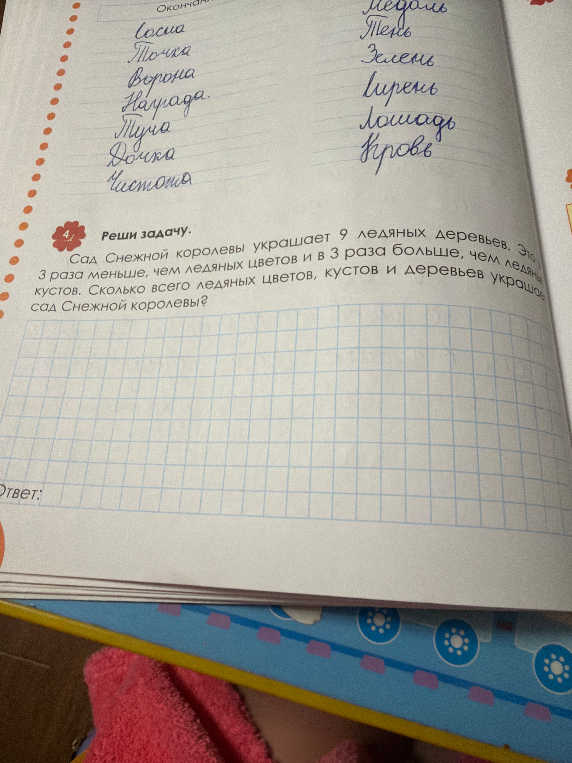 Окончан
Сосна
Точка
Ворона
Награда.
Туча
Дочка
Чистота
Медаль
Тень
Зелень
Сирень
Лошадь
Кровь
4
Реши задачу.
Сад Снежной королевы украшает 9 ледяных деревьев. Это
3 раза меньше, чем ледяных цветов и в 3 раза больше, чем ледян
кустов. Сколько всего ледяных цветов, кустов и деревьев украша
сад Снежной королевы?
Ответ: